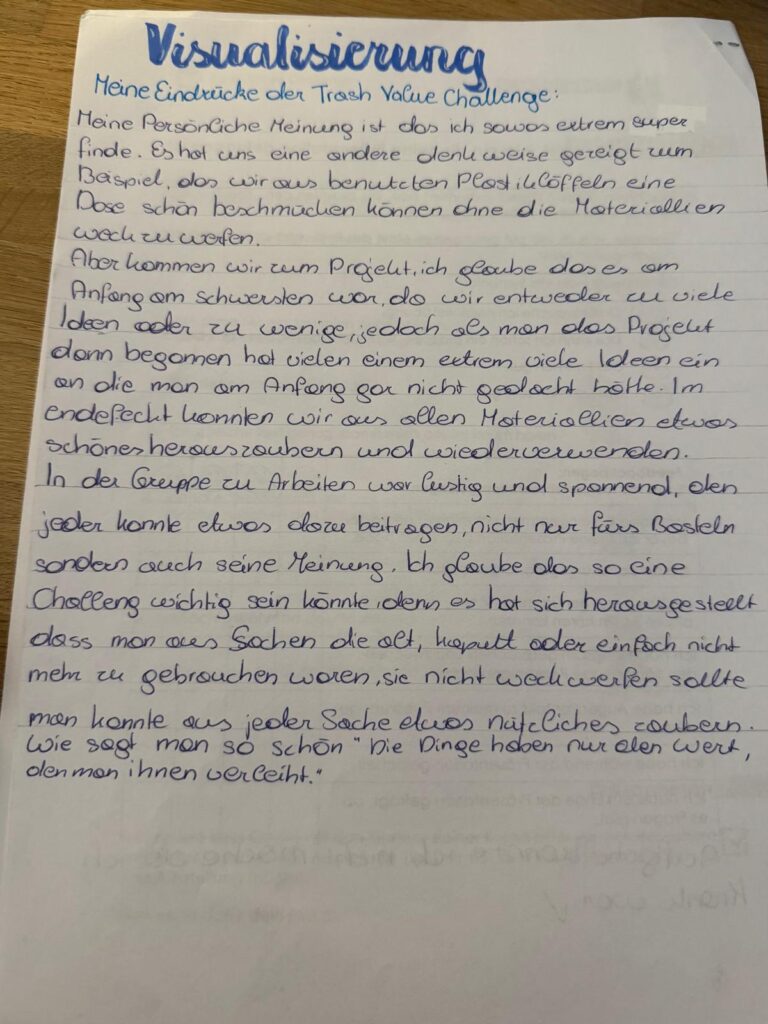 Visualisierung
Meine Eindrücke der Trash Value Challenge:
Meine Persönliche Meinung ist das ich sowas extrem super
finde. Es hat uns eine andere denkweise gezeigt zum
Beispiel, das wir aus benutzten Plastiklöffeln eine
Dose schön beschmücken können ohne die Materiallien
weckzuwerfen.
Aber kommen wir zum Projekt, ich glaube das es am
Anfang am schwersten war, da wir entweder zu viele
Ideen oder zu wenige, jedoch als man das Projekt
dann begonnen hat vielen einem extrem viele Ideen ein
an die man am Anfang gar nicht gedacht hätte. Im
endefeckt konnten wir aus allen Materiallien etwas
schönes herauszaubern und wiederverwenden.
In der Gruppe zu Arbeiten war lustig und spannend, den
jeder konnte etwas dazu beitragen, nicht nur fürs Basteln
sondern auch seine Meinung. Ich glaube das so eine
Challeng wichtig sein könnte, denn es hat sich herausgestellt
dass man aus Sachen die alt, kaputt oder einfach nicht
mehr zu gebrauchen waren, sie nicht weckwerfen sollte
man konnte aus jeder Sache etwas nützliches zaubern.
Wie sagt man so schön "Die Dinge haben nur den Wert,
den man ihnen verleiht."